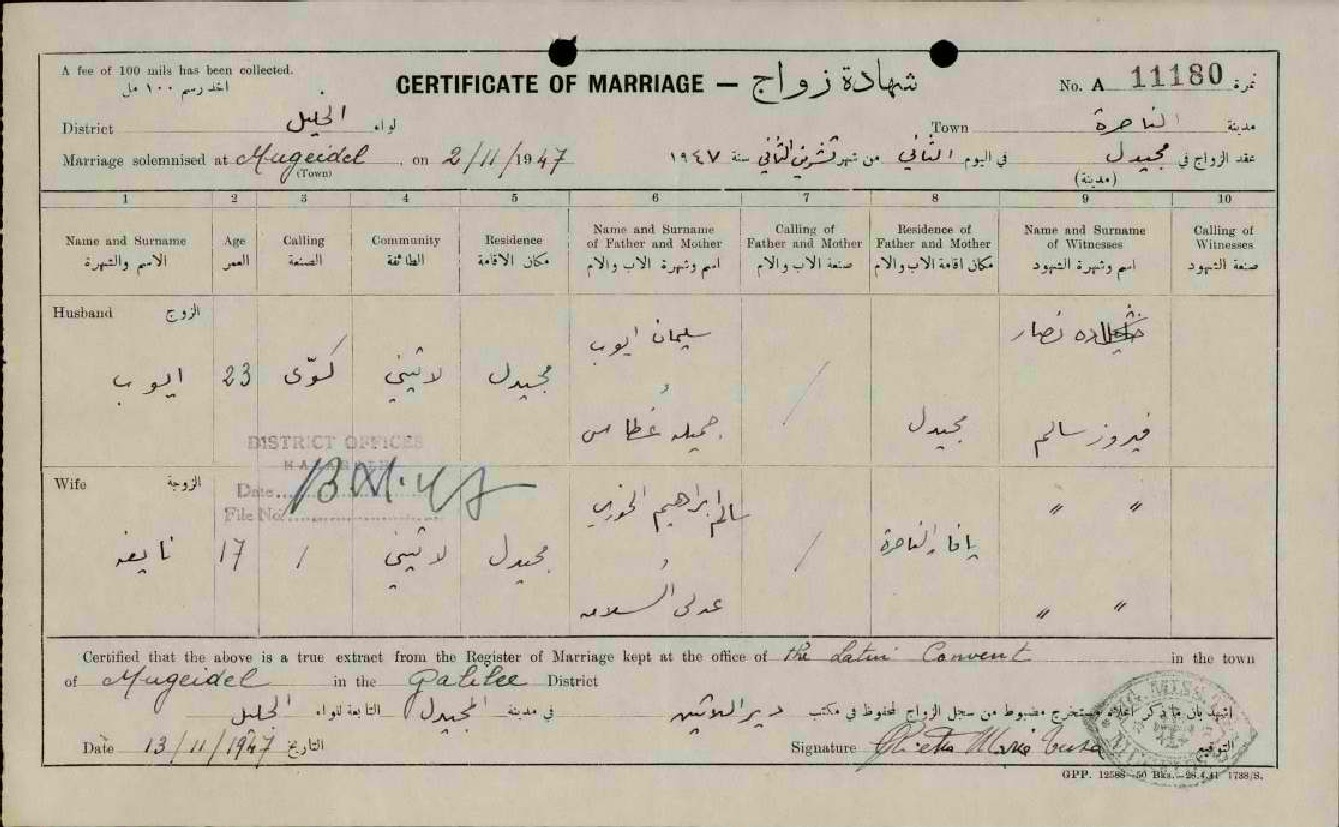 A fee of 100 mils has been collected.
اخذ رسم ١٠٠ مل
CERTIFICATE OF MARRIAGE — شهادة زواج
No. A 11180 نمرة
District الجليل لواء
Town الناصرة مدينة
Marriage solemnised at Mugeidel on 2/11/1947
(Town)
عقد الزواج في مجيدل في اليوم الثاني من شهر تشرين الثاني سنة ١٩٤٧
(مدينة)
1 2 3 4 5 6 7 8 9 10
Name and Surname
الاسم والشهرة
Age
العمر
Calling
الصنعة
Community
الطائفة
Residence
مكان الاقامة
Name and Surname
of Father and Mother
اسم وشهرة الاب والام
Calling of
Father and Mother
صنعة الاب والام
Residence of
Father and Mother
مكان اقامة الاب والام
Name and Surname
of Witnesses
اسم وشهرة الشهود
Calling of
Witnesses
صنعة الشهود
Husband الزوج
ايوب
23
كوّى
لاتيني
مجيدل
سليمان ايوب
و
جميله غطاس
/
مجيدل
نصار
فيروز سالم
DISTRICT OFFICES
Date
File No.
Wife الزوجة
نايفه
17
/
لاتيني
مجيدل
سالم ابراهيم الخوري
و
/
يافا الناصرة
" "
" "
Certified that the above is a true extract from the Register of Marriage kept at the office of the Latin Convent in the town
of Mugeidel in the Galilee District
اشهد بان ما ذكر اعلاه مستخرج مضبوط من سجل الزواج المحفوظ في مكتب دير اللاتين في مدينة المجيدل التابعة للواء الجليل
Date 13/11/1947 التاريخ
Signature التوقيع
GPP. 12588—50 Bks.—28.4.41 1738/S.